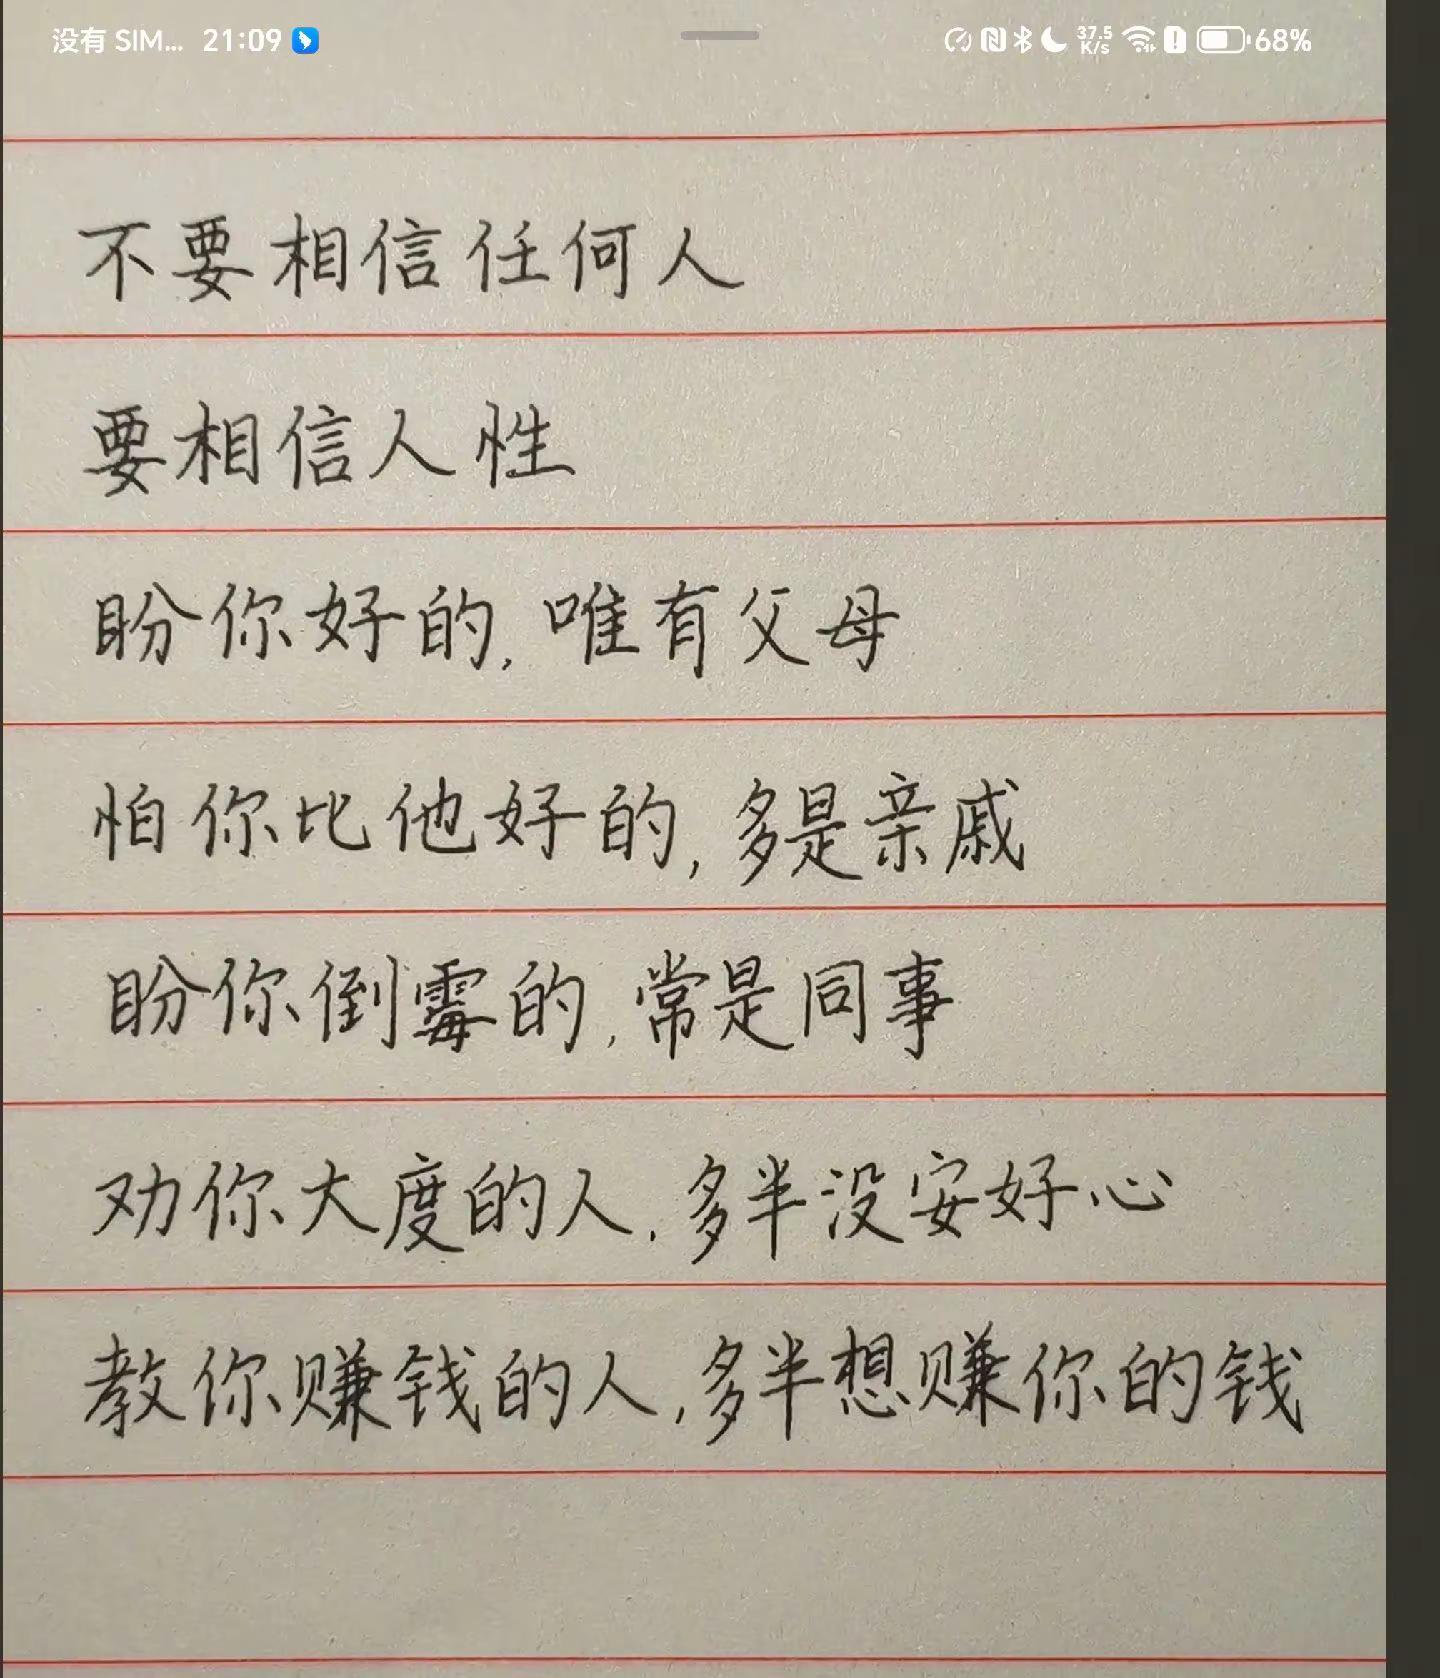 没有 SIM... 21:09 37.5 K/s 68%
不要相信任何人
要相信人性
盼你好的,唯有父母
怕你比他好的,多是亲戚
盼你倒霉的,常是同事
劝你大度的人,多半没安好心
教你赚钱的人,多半想赚你的钱